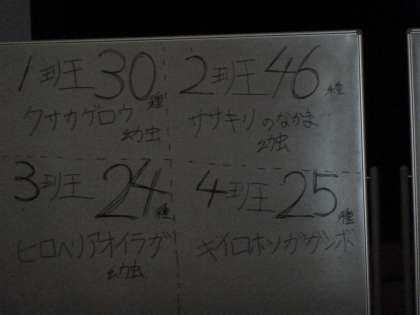 1班 30種
クサカゲロウ
幼虫
2班 46種
ササキリのなかま
幼虫
3班 24種
ヒロヘリアオイラガ
幼虫
4班 25種
キイロホソガガンボ